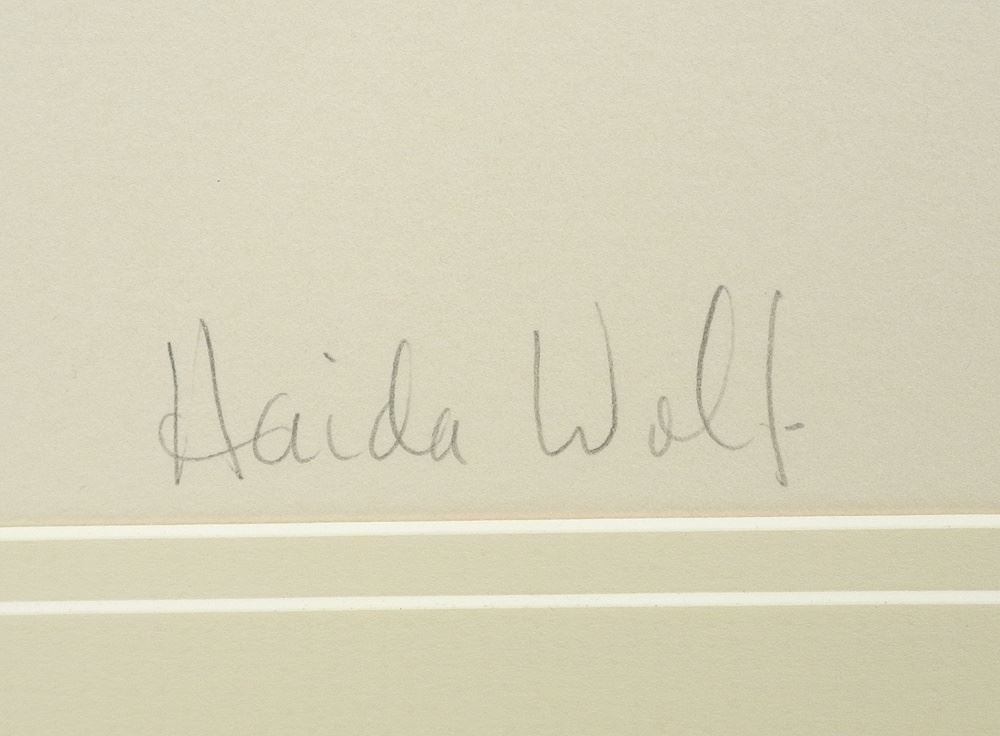 Haida Wolf